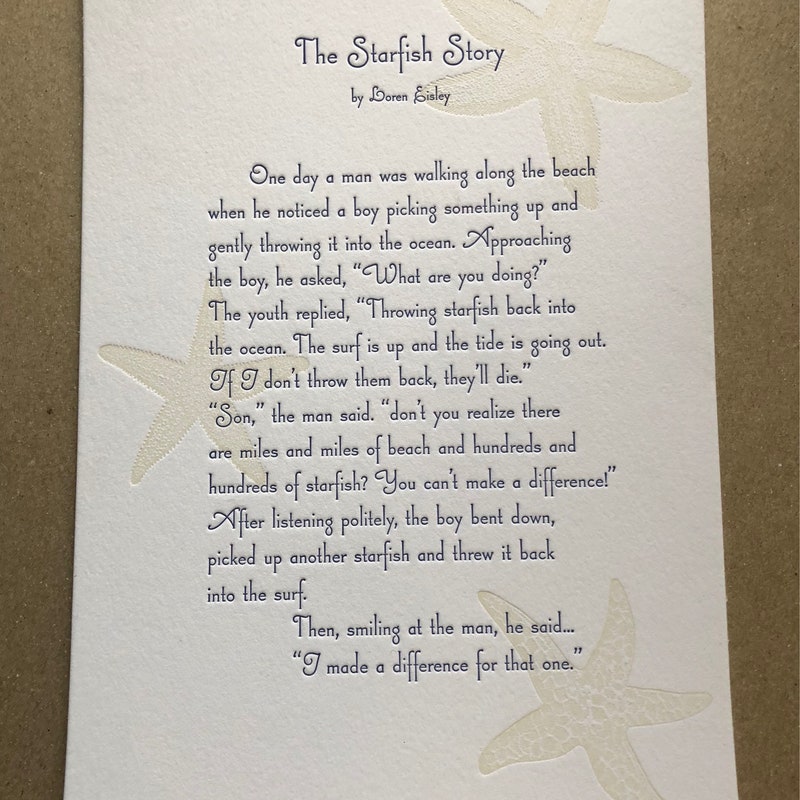 The Starfish Story
by Loren Eisley
One day a man was walking along the beach
when he noticed a boy picking something up and
gently throwing it into the ocean. Approaching
the boy, he asked, “What are you doing?”
The youth replied, “Throwing starfish back into
the ocean. The surf is up and the tide is going out.
If I don’t throw them back, they’ll die.”
“Son,” the man said. “don’t you realize there
are miles and miles of beach and hundreds and
hundreds of starfish? You can’t make a difference!”
After listening politely, the boy bent down,
picked up another starfish and threw it back
into the surf.
Then, smiling at the man, he said...
“I made a difference for that one.”